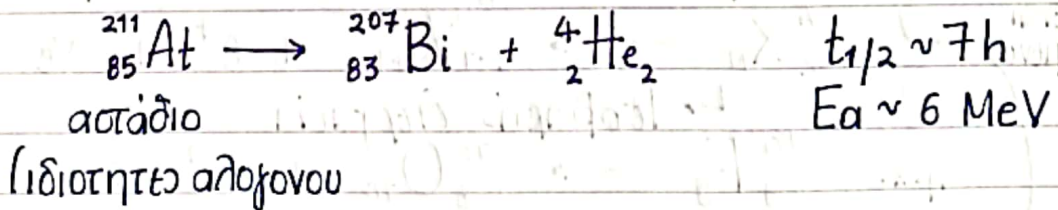 ²¹¹₈₅At ⟶ ²⁰⁷₈₃Bi + ⁴₂He₂ t₁/₂ ~ 7h
αστάδιο Eα ~ 6 MeV
(ιδιοτητες αλογονου